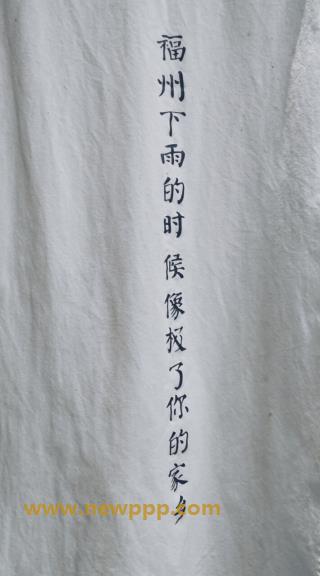 福州下雨的时候像极了你的家乡
www.newppp.com